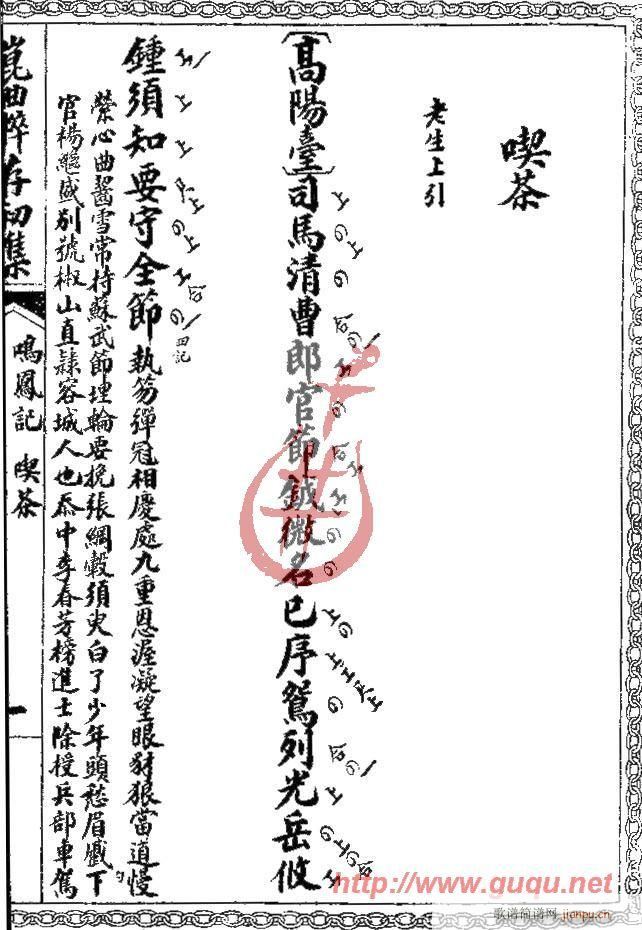 喫茶
老生上引
〔高陽臺〕司馬清曹郎官節鉞微名已序鴛列光岳攸
鍾須知要守全節執笏彈冠相慶處九重恩渥凝望眼豺狼當道慢
縈心曲齧雪常持蘇武節埋輪要挽張綱轂須臾白了少年頭愁眉蹙下
官楊繼盛別號椒山直隸容城人也忝中李春芳榜進士除授兵部車駕
崑曲粹存初集
鳴鳳記 喫茶
一
http://www.guqu.net
歌谱简谱网 jianpu.cn